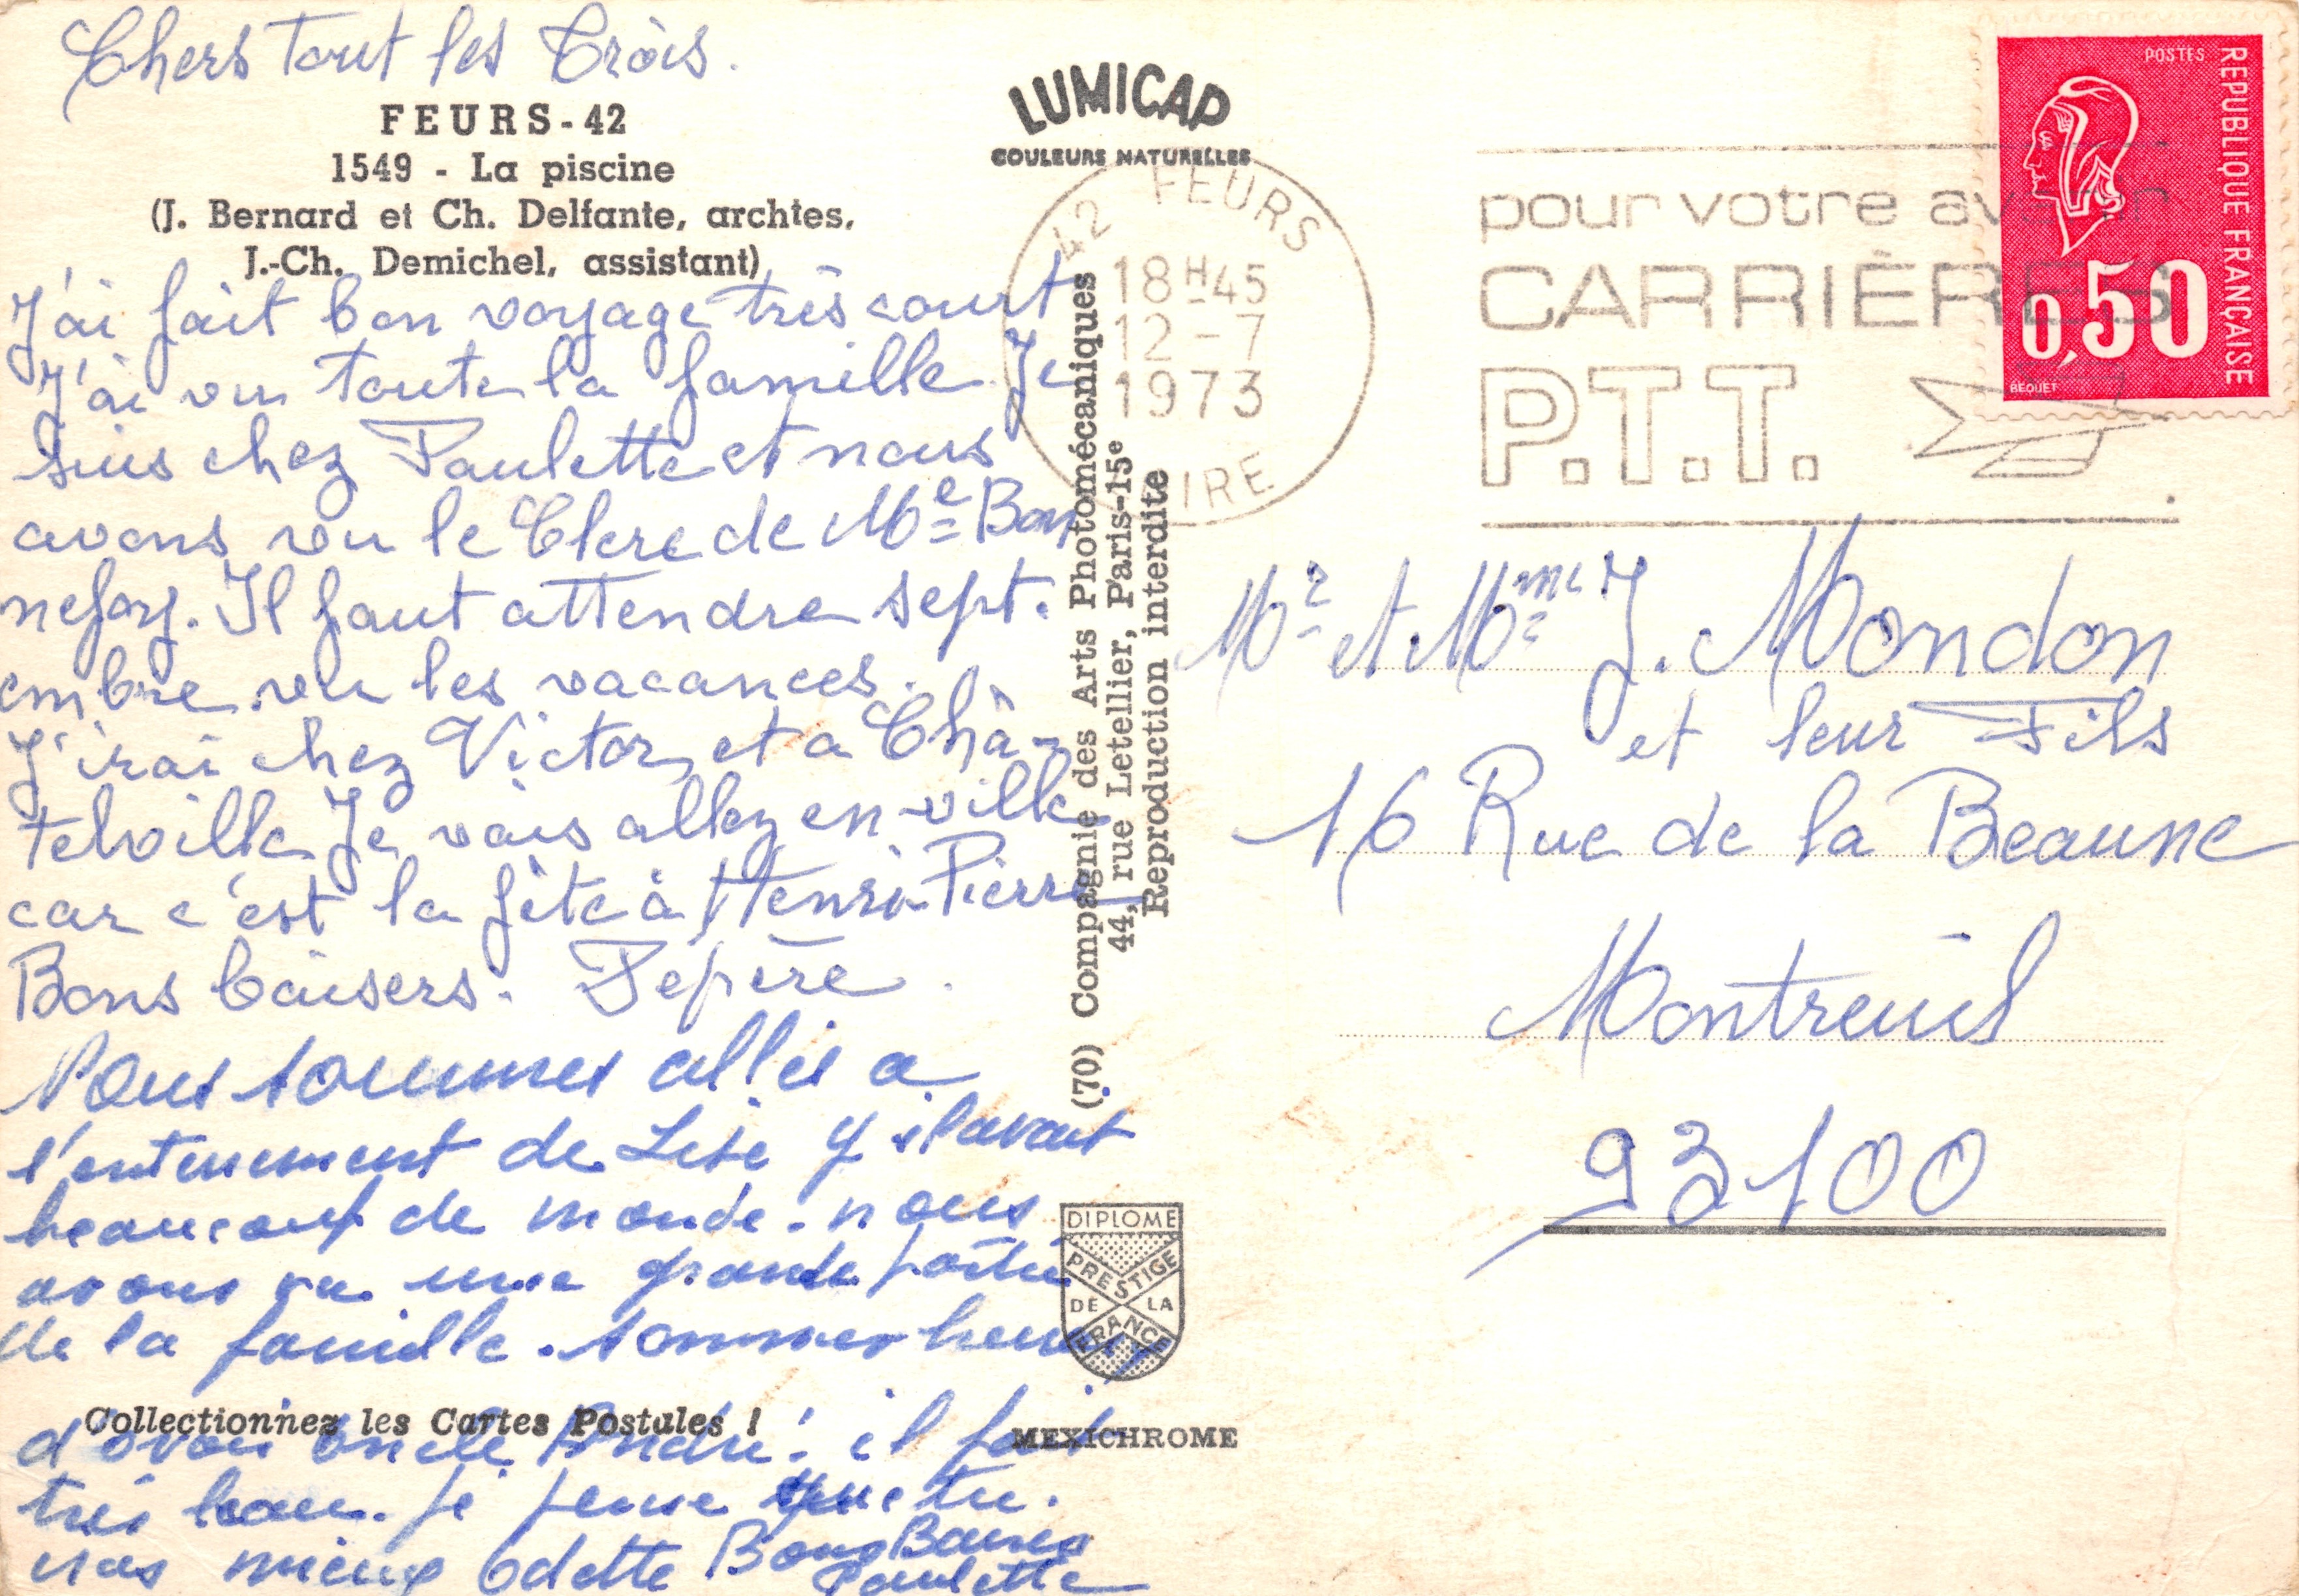 Chers tout les Trois.
FEURS-42
1549 - La piscine
(J. Bernard et Ch. Delfante, archtes,
J.-Ch. Demichel, assistant)
J'ai fait bon voyage très court
J'ai vu toute la famille Je
suis chez Paulette et nous
avons vu le Clerc de Me Bon
nefoy. Il faut attendre sept.
embre vu les vacances.
J'irai chez Victor et a Châ-
telville Je vais allez en ville
car c'est la fête à Henri-Pierre
Bons baisers. Pépère.
Nous sommes allés a
l'enterrement de Lise Y il avait
beaucoup de monde. nous
avons vu une grande partie
de la famille. sommes heureux
Collectionnez les Cartes Postales !
d'avoir oncle André. il fait
très beau. je pense que tu
vas mieux Odette Bons Baisers
Paulette
LUMICAP
COULEURS NATURELLES
42 FEURS
18H45
12-7
1973
LOIRE
(70) Compagnie des Arts Photomécaniques
44, rue Letellier, Paris-15e
Reproduction interdite
DIPLOME
PRESTIGE
DE LA
FRANCE
MEXICHROME
pour votre avenir
CARRIÈRES
P.T.T.
POSTES
REPUBLIQUE FRANÇAISE
0,50
BEQUET
Mr et Mme J. Mondon
et leur Fils
16 Rue de la Beaune
Montreuil
93100